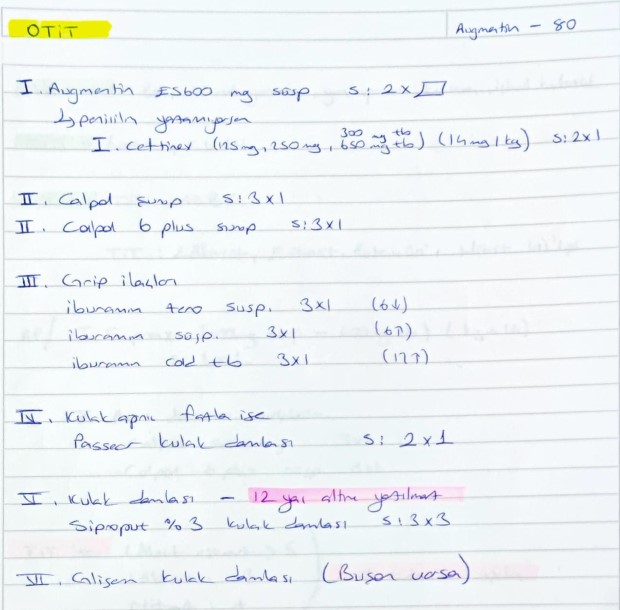 OTİT
Augmentin - 80
I. Augmentin ES600 mg süsp S: 2x
↳ penisilin yazamıyorsan
I. Ceftinex (125 mg, 250 mg, 300 mg tb 650 mg tb) (14 mg/kg) S: 2x1
II. Calpol şurup S: 3x1
II. Calpol 6 plus şurup S: 3x1
III. Grip ilaçları
iburamin zero susp. 3x1 (6↓)
iburamin susp. 3x1 (6↑)
iburamin cold tb 3x1 (12↑)
IV. Kulak ağrısı fazla ise
kulak damlası S: 2x1
V. Kulak damlası - 12 yaş altına yazılmaz
Siproput %3 kulak damlası S: 3x3
VI. Gliseri kulak damlası (Buşon varsa)